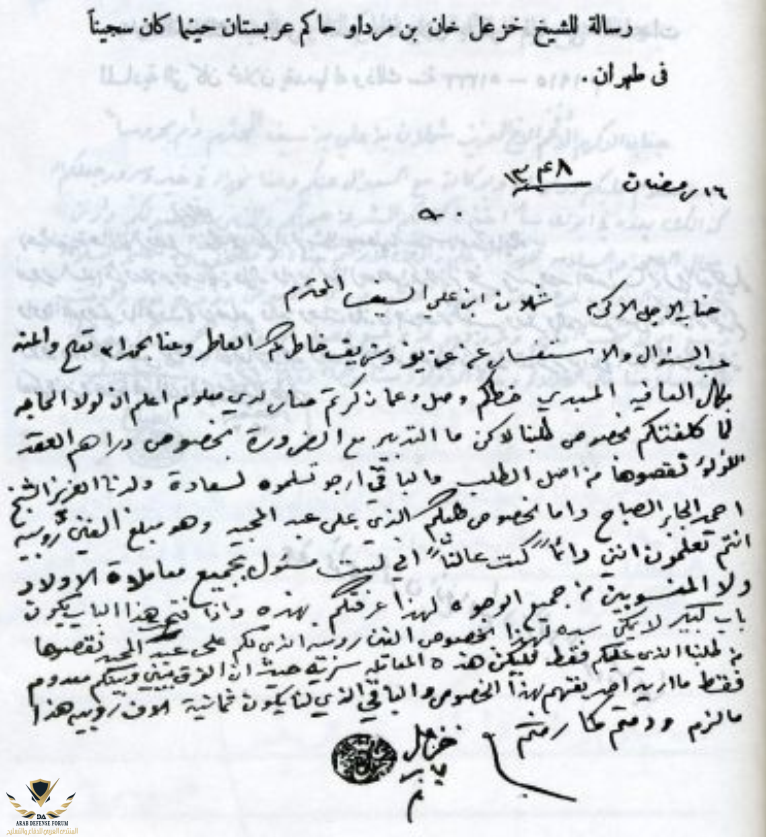 رسالة للشيخ خزعل خان بن مرداو حاكم عربستان حينما كان سجيناً
فى طهران .
١٦ رمضان ١٣٤٨
٩٠
جناب الاجل الاكرم شملان ابن علي السيف المحترم
غب السؤال والاستفسار عن عزيز وشريف خاطركم العاطر وعنا بحمد الله تعالى والمنه
بكمال العافيه المبدي خطكم وصل وعما ذكرتم صار لدي معلوم اعلم ان لولا الحاجه
لما كلفتكم بخصوص طلبنا لاكن ما التدبير مع الضرورة بخصوص دراهم العقد
اللؤلؤ تقصوها من اصل الطلب والباقي ارجو تسلموه لسعادة ولدنا العزيز الشيخ
احمد الجابر الصباح واما بخصوص طلبكم الذي على عبد المجيد وهو مبلغ الفين روبيه
انتم تعلمون انني دائماً كتبت انني ليست مسئول بجميع معاملاة الاولاد
ولا المنسوبين من جميع الوجوه لهذا عرفتكم بهذه واذا فتح هذا الباب يكون
باب كبير لا يمكن سده لهذا بخصوص الفين روبيه الذي لكم على عبد المجيد تقصوها
من طلبنا الذي عليكم فقط فليكن هذه المعامله سريه حيث ان الفرق بيني وبينكم معدوم
فقط ما اريد احد يفتهم بهذا الخصوص والباقي الذي لنا يكون ثمانية الاف روبيه هذا
مالزم ودمتم
خزعل
ARAB DEFENSE FORUM
المنتدى العربي للدفاع والتسليح